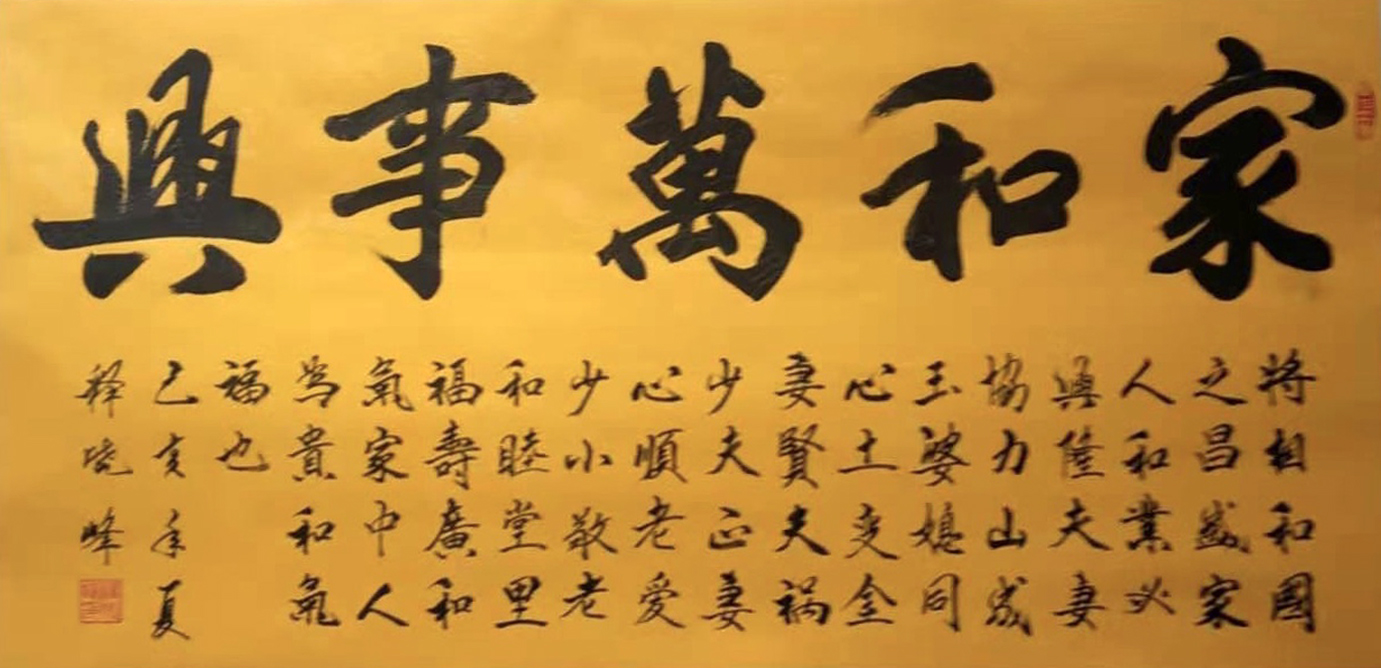 家和萬事興
將相和國
之昌盛家
人和業必
興隆夫妻
協力山成
玉婆媳同
心土变金
妻賢夫祸
少夫正妻
心順老爱
少小敬老
和睦堂里
福壽廣和
氣家中人
為貴和氣
福也
己亥年夏
释晓峰